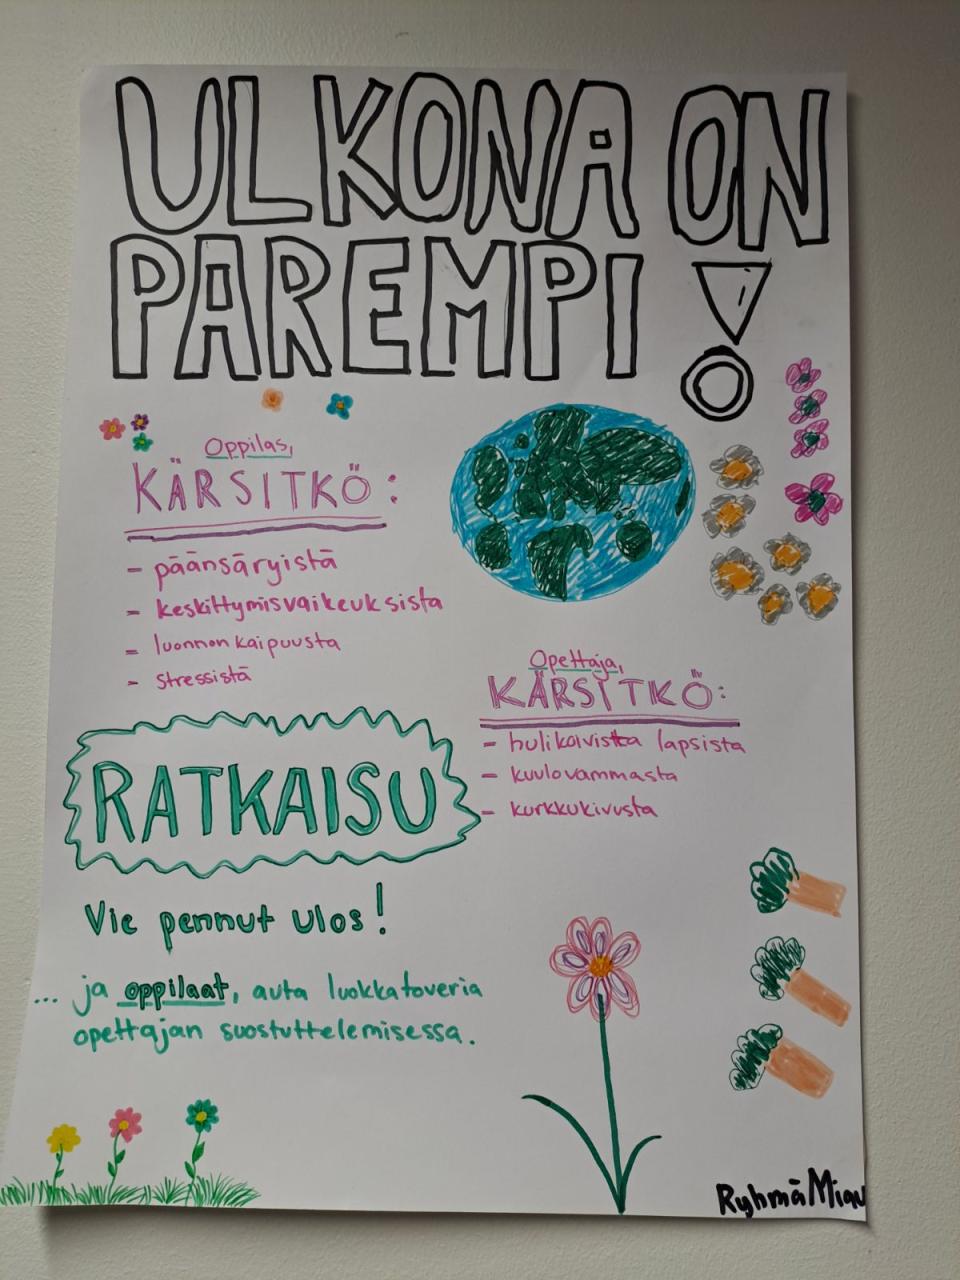 ULKONA ON
PAREMPI!
Oppilas,
KÄRSITKÖ:
- päänsäryistä
- keskittymisvaikeuksista
- luonnon kaipuusta
- stressistä
Opettaja,
KÄRSITKÖ:
- hulikoivista lapsista
- kuulovammasta
- kurkkukivusta
RATKAISU
Vie pennut ulos!
... ja oppilaat, auta luokkatoveria
opettajan suostuttelemisessa.
Ryhmä Miau